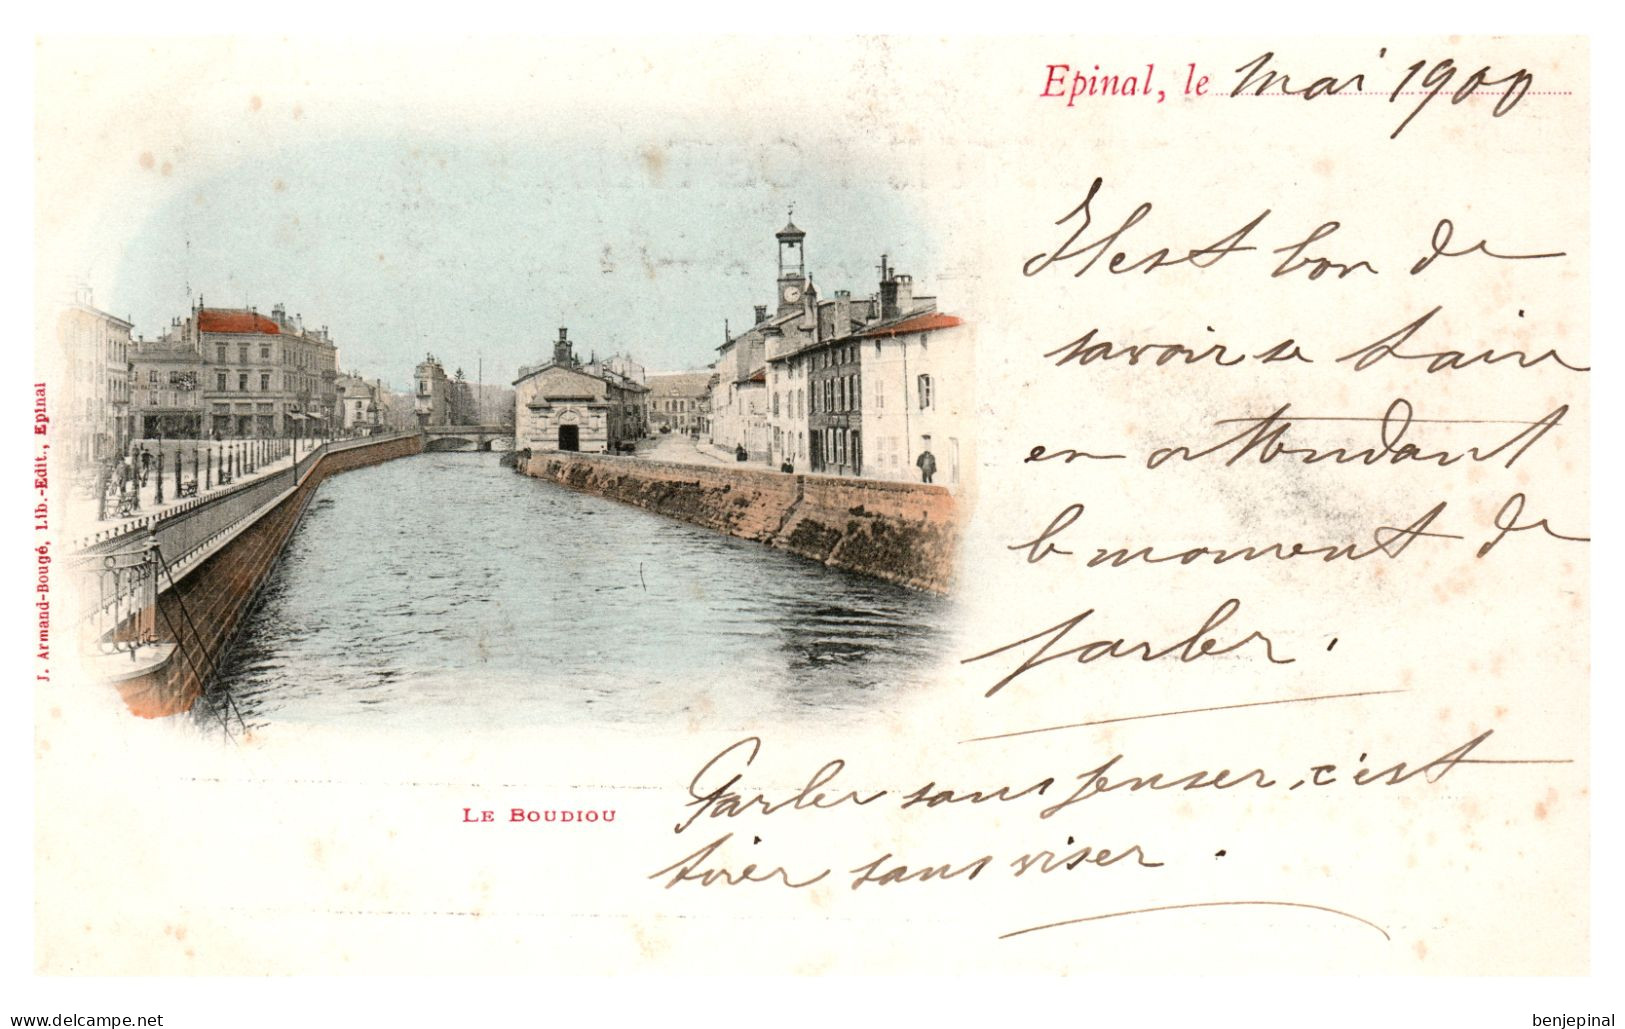 Epinal, le mai 1900
Il est bon de
savoir se taire
en attendant
le moment de
parler.
Parler sans penser, c'est
tirer sans viser.
LE BOUDIOU
J. Armand-Bougé, Lib.-Edit., Epinal
www.delcampe.net
benjepinal